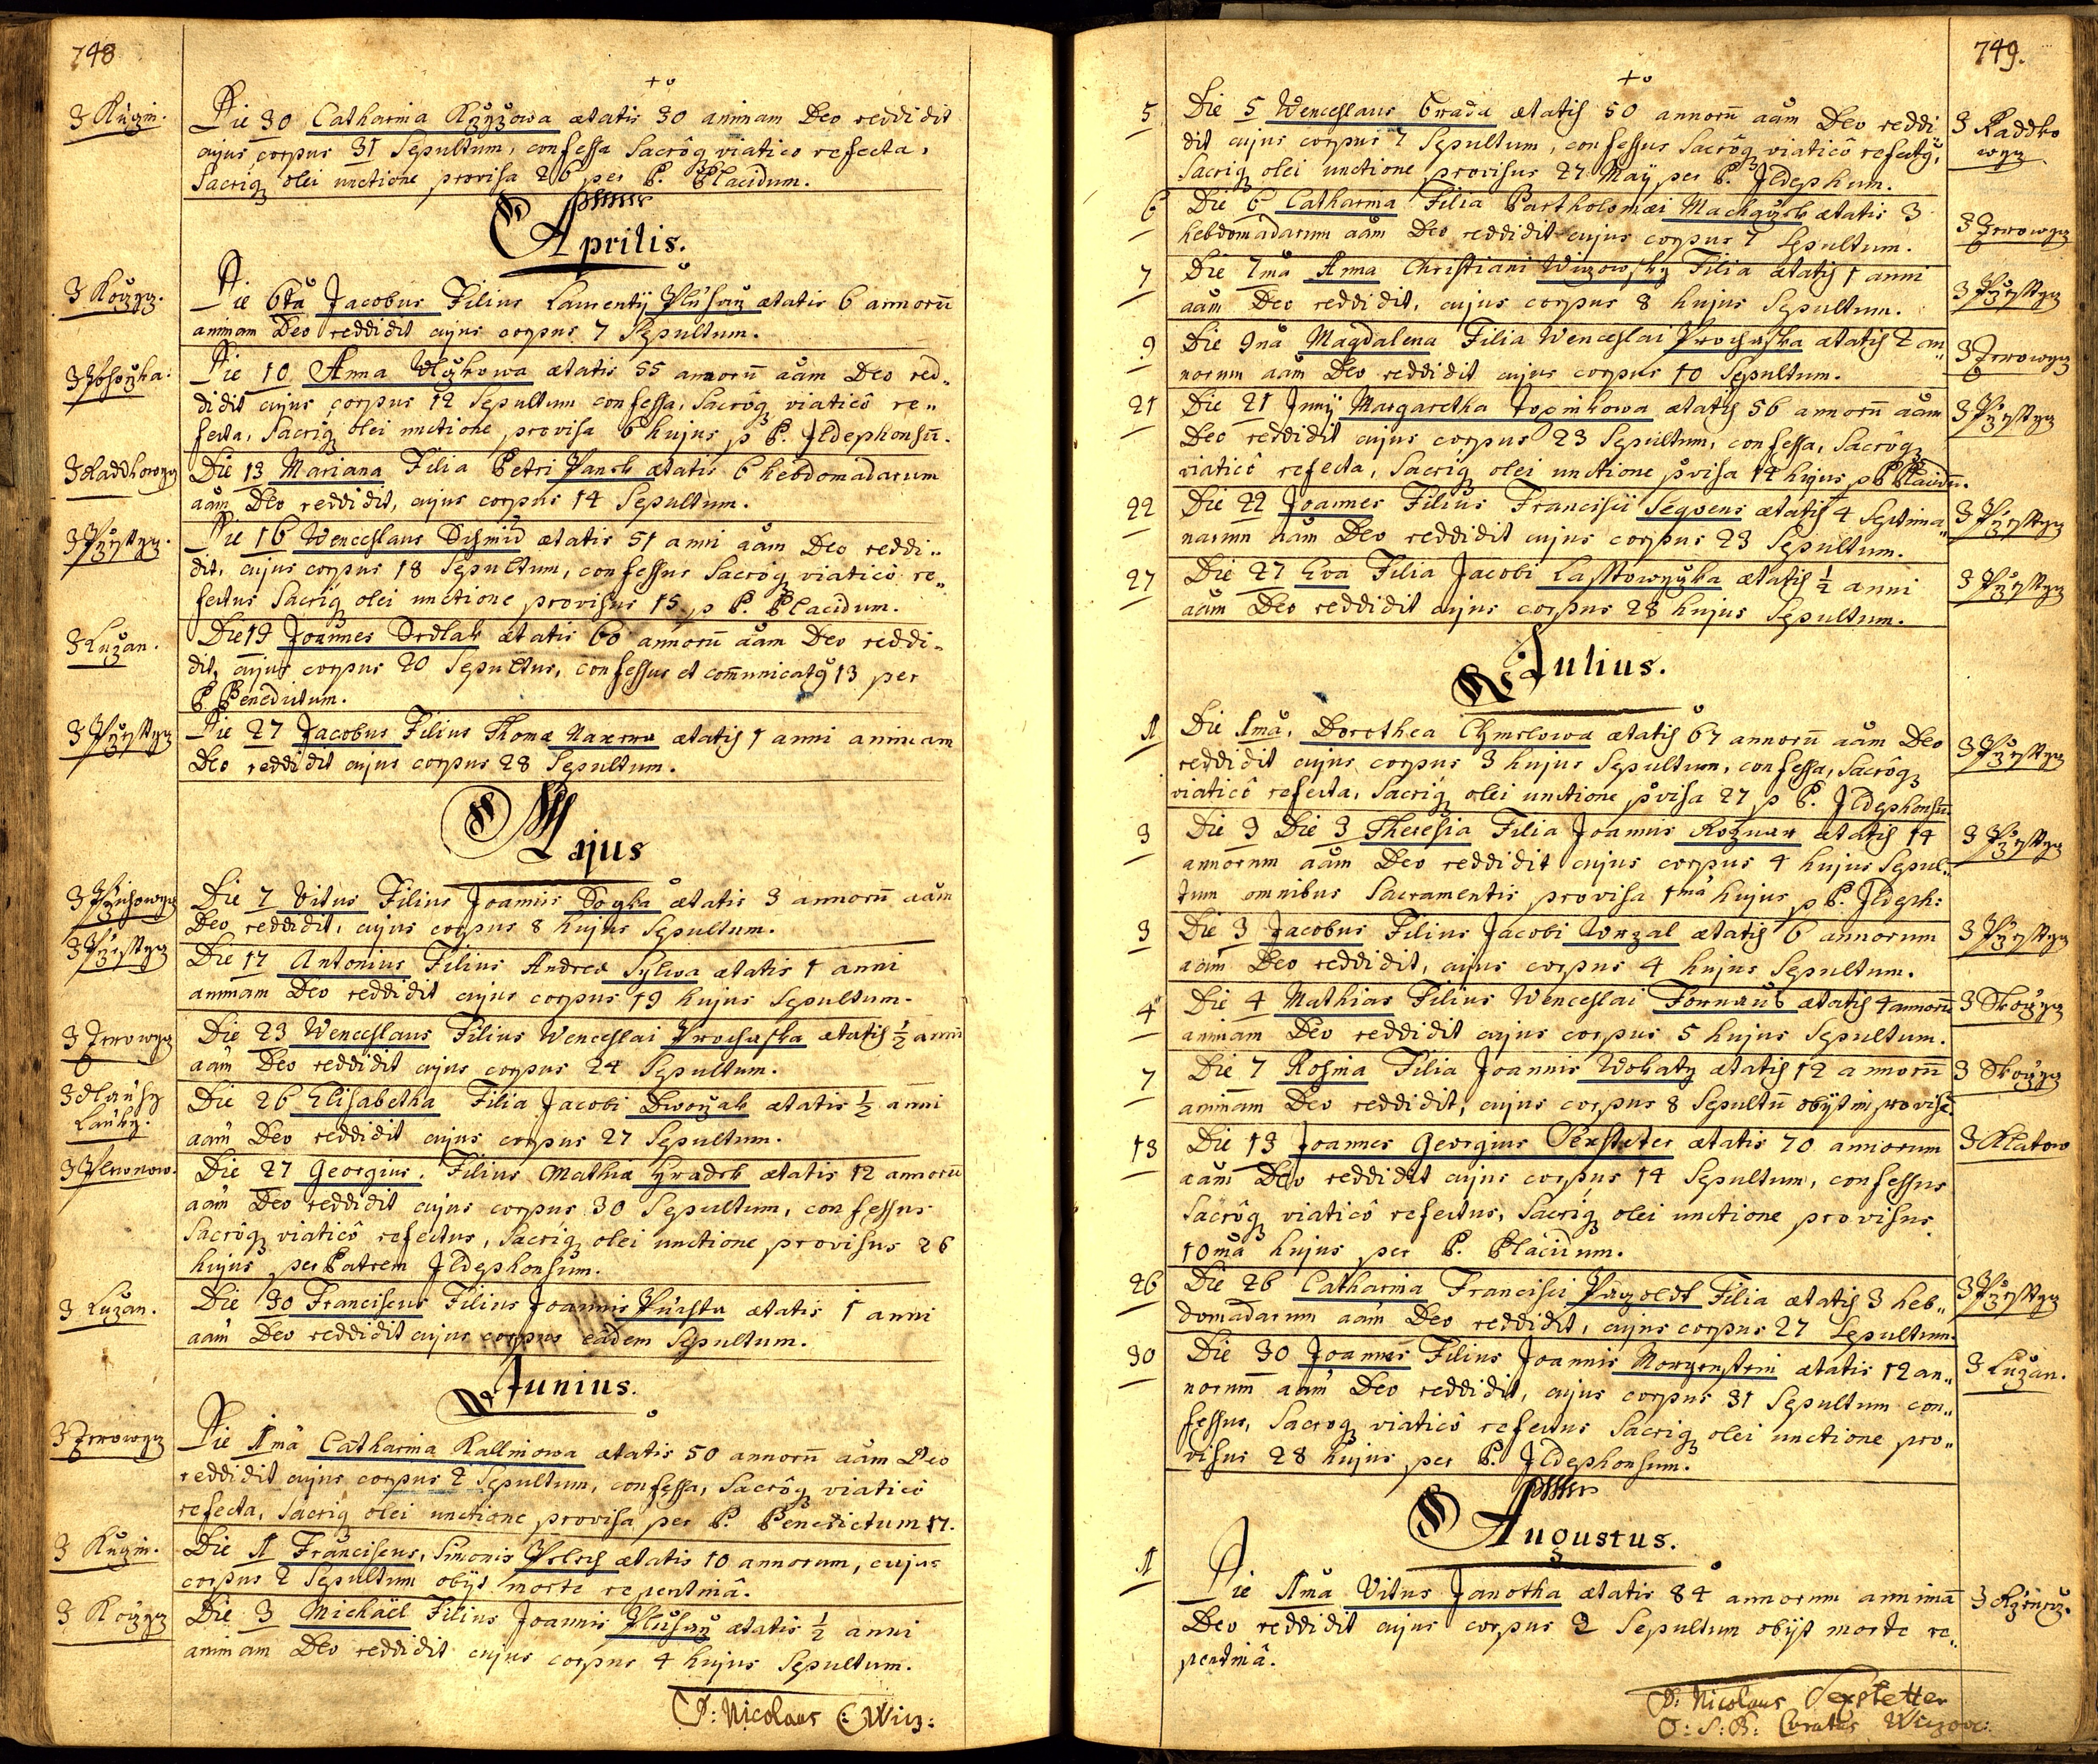 748
Z Kuzin.
Die 30 Catharina Kzyzowa ætatis 30 animam Deo reddidit
cujus corpus 31 Sepultum, confessa Sacrôq viatico refecta,
Sacriq olei unctione provisa 26 per P. Placidum.
Aprilis.
Die 6ta Jacobus Filius Laurentij ætatis 6 annorū
animam Deo reddidit cujus corpus 7 Sepultum.
Die 10 Anna ætatis 55 annorū aām Deo red„
didit cujus corpus 12 Sepultum confessa, Sacrôq viaticô re„
fecta, Sacriq olei unctione provisa 6 hujus p P. Ildephonsū.
Die 13 Mariana Filia Petri Panek ætatis 6 hebdomadarum
aām Deo reddidit, cujus corpus 14 Sepultum.
Die 16 Wenceslaus Schmid ætatis 51 anni aām Deo reddi„
dit, cujus corpus 18 Sepultum, confessus Sacrôq viaticô re„
fectus Sacriq olei unctione provisus 15 p P. Placidum.
Z Luzan.
Die 19 Joannes Srdlak ætatis 60 annorū aām Deo reddi„
dit, cujus corpus 20 Sepultus, confessus et com̄unicatg 13 per
P. Benedictum.
Die 27 Jacobus Filius Thomæ ætatis 1 anni animam
Deo reddidit cujus corpus 28 Sepultum.
Majus
Die 7 Vitus Filius Joannis ætatis 3 annorū aām
Deo reddidit, cujus corpus 8 hujus Sepultum.
Die 17 Antonius Filius Andreæ Sylwa ætatis 1 anni
animam Deo reddidit cujus corpus 19 hujus Sepultum.
Die 23 Wenceslaus Filius Wenceslai Prochaska ætatis ½ anni
aām Deo reddidit cujus corpus 24 Sepultum.
Die 26 Elisabetha Filia Jacobi Dworzak ætatis ½ anni
aām Deo reddidit cujus corpus 27 Sepultum.
Die 27 Georgius. Filius Mathiæ Hradek ætatis 12 annorū
aām Deo reddidit cujus corpus 30 Sepultum, confessus
Sacrôq viaticô refectus, Sacriq olei unctione provisus 26
hujus per Patrem Ildephonsum.
Z Luzan.
Die 30 Franciscus Filius Joannis ætatis 1 anni
aām Deo reddidit cujus corpus eâdem Sepultum.
Junius.
Die 1mâ Catharina Kallinowa ætatis 50 annorū aām Deo
reddidit cujus corpus 2 Sepultum, confessa, Sacrôq viaticô
refecta, Sacriq olei unctione provisa per P. Benedictum 17.
Z Kuzin.
Die 1 Franciscus, Simonis ætatis 10 annorum, cujus
corpus 2 Sepultum obijt morte repentinâ.
Die 3 Michaël Filius Joannis ætatis ½ anni
animam Deo reddidit cujus corpus 4 hujus Sepultum.
P: Nicolaus C: Wicz:
749.
5
Die 5 Wenceslaus Brada ætatis 50 annorū aām Deo reddi
dit cujus corpus 7 Sepultum, confessus Sacrôq viaticô refectg,
Sacriq olei unctione provisus 27 Maÿ per P. Ildephum.
6
Die 6 Catharina Filia Bartholomæi Machaczek ætatis 3
hebdomadarum aām Deo reddidit cujus corpus 7 Sepultum.
7
Die 7mâ Anna Christiani Wiczowsky Filia ætatis 1 anni
aām Deo reddidit, cujus corpus 8 hujus Sepultum.
9
Die 9nâ Magdalena Filia Wenceslai Prochaska ætatis 2 an„
norum aām Deo reddidit cujus corpus 10 Sepultum.
21
Die 21 Junij Margaretha ætatis 56 annorū aām
Deo reddidit cujus corpus 23 Sepultum, confessa, Sacrôq
viaticô refecta, Sacriq olei unctione pvisa 14 hujus p P. Placidū.
22
Die 22 Joannes Filius Francisci Seqvens ætatis 4 Septima„
narum aām Deo reddidit cujus corpus 23 Sepultum.
27
Die 27 Eva Filia Jacobi Lasstowczka ætatis ½ anni
aām Deo reddidit cujus corpus 28 hujus Sepultum.
Julius.
1
Die 1mâ, Dorothea Chmelowa ætatis 67 annorū aām Deo
reddidit cujus corpus 3 hujus Sepultum, confessa, Sacrôq
viaticô refecta, Sacriq olei unctione pvisa 27 p P. Ildephonsū.
3
Die 3 Die 3 Theresia Filia Joannis ætatis 14
annorum aām Deo reddidit cujus corpus 4 hujus Sepul„
tum omnibus Sacramentis provisa 1mâ hujus p P. Ildeph:
3
Die 3 Jacobus Filius Jacobi Wrzal ætatis 6 annorum
aām Deo reddidit, cujus corpus 4 hujus Sepultum.
4
Die 4 Mathias Filius Wenceslai Fornaus ætatis 4 annorū
animam Deo reddidit cujus corpus 5 hujus Sepultum.
7
Die 7 Rosina Filia Joannis Wokaty ætatis 12 annorū
animam Deo reddidit, cujus corpus 8 Sepultū obijt improvisè.
13
Z Klatow
Die 13 Joannes Georgius Sexstetter ætatis 70 annorum
aām Deo reddidit cujus corpus 14 Sepultum, confessus
Sacrôq viaticô refectus, Sacriq olei unctione provisus
10mâ hujus per P. Placidum.
26
Die 26 Catharina Francisci Pazoldt Filia ætatis 3 heb„
domadarum aām Deo reddidit, cujus corpus 27 Sepultum.
30
Z Luzan.
Die 30 Joannes Filius Joannis Morgenstern ætatis 12 an„
norum aām Deo reddidit, cujus corpus 31 Sepultum con„
fessus, Sacroq viaticô refectus Sacriq olei unctione pro„
visus 28 hujus per P. Ildephonsum.
Augustus.
1
Die 1mâ Vitus Janotha ætatis 84 annorum animā
Deo reddidit cujus corpus 2 Sepultum obijt morte re„
pentinâ.
P: Nicolaus Sexstetter
O: S: B: Curatus Wiczov: